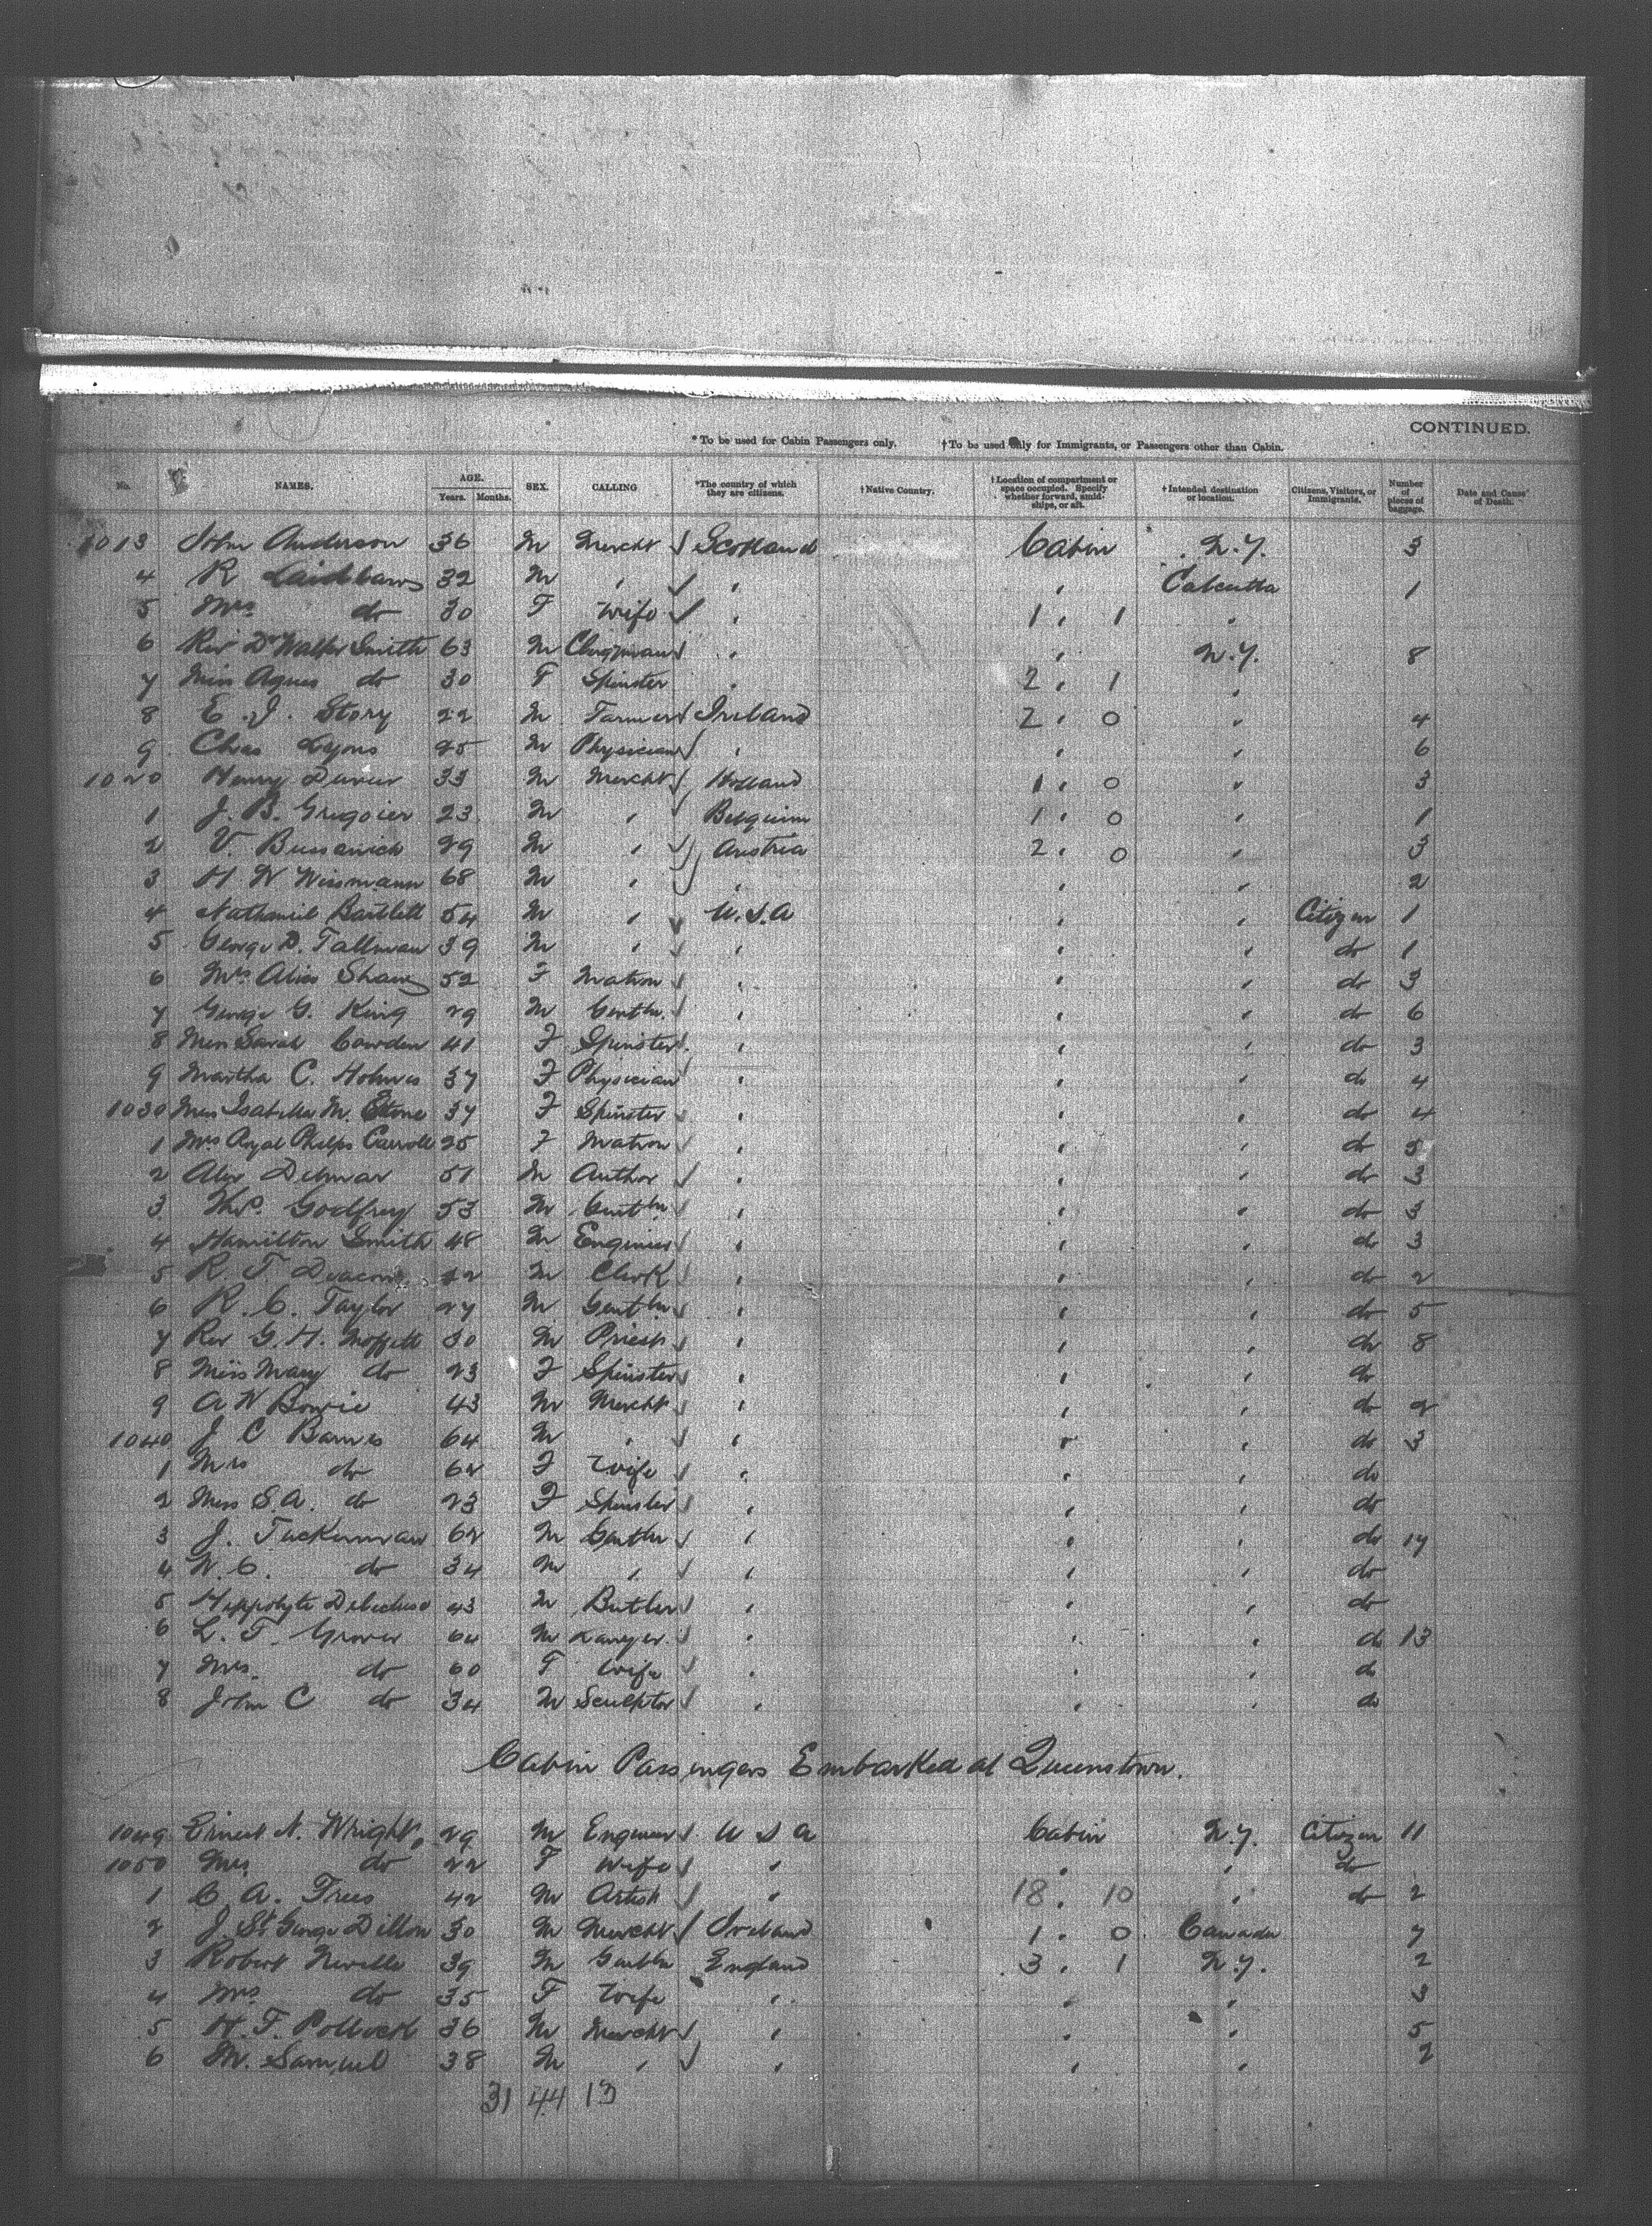 CONTINUED.
* To be used for Cabin Passengers only. † To be used only for Immigrants, or Passengers other than Cabin.
No. NAMES. AGE. Years. Months. SEX. CALLING *The country of which they are citizens. † Native Country. † Location of compartment or space occupied. Specify whether forward, amidships, or aft. † Intended destination or location. Citizens, Visitors, or Immigrants. Number of pieces of baggage. Date and Cause of Death.
1013 John Anderson 36 M Mercht Scotland Cabin N.Y. 3
4 R 32 M " " " Calcutta 1
5 Mrs do 30 F Wife " 1 " 1 "
6 Rev Dr Walter Smith 63 M Clergyman " " N.Y. 8
7 Miss Agnes do 30 F Spinster " 2 " 1 "
8 E. J. Story 22 M Farmer Ireland 2 " 0 " 4
9 Chas Lyons 25 M Physician " " " 6
1020 Henry 33 M Mercht Holland 1 " 0 " 3
1 J. B. Gregoier 23 M " Belguim 1 " 0 " 1
2 V. Bussanich 29 M " Austria 2 " 0 " 3
3 H W Wissmann 68 M " " " " 2
4 Nathaniel Bartlett 54 M " U.S.A " " Citizen 1
5 George D. Tallman 39 M " " " " do 1
6 Mrs Alice Shaw 52 F Matron " " " do 3
7 George G. King 29 M Gentln. " " " do 6
8 Miss Sarah Cowden 41 F Spinster " " " do 3
9 Martha C. Holmes 37 F Physician " " " do 4
1030 Miss Isabella M. Stone 37 F Spinster " " " do 4
1 Mrs Royal Phelps Carroll 25 F Matron " " " do 5
2 Alex Delmar 51 M Author " " " do 3
3 Thos. Godfrey 53 M Gentln " " " do 3
4 Hamilton Smith 48 M Engineer " " " do 3
5 R. T. Deacon M Clerk " " " do 2
6 R. C. Taylor 27 M Gentln " " " do 5
7 Rev G. H. Moffett 30 M Priest " " " do 8
8 Miss Mary do 23 F Spinster " " " do
9 A W Bowie 43 M Mercht " " " do 2
1040 J C Barnes 64 M " " " " do 3
1 Mrs do 62 F Wife " " " do
2 Miss S.A. do 23 F Spinster " " " do
3 J. Tuckerman 62 M Gentln " " " do 17
4 W. C. do 34 M " " " " do
5 Hippolyte 43 M Butler " " " do
6 L. F. Grover 64 M Lawyer " " " do 13
7 Mrs. do 60 F Wife " " " do
8 John C do 34 M Sculptor " " " do
Cabin Passengers Embarked at Queenstown.
1049 Ernest N. Wright 29 M Engineer U S A Cabin N.Y. Citizen 11
1050 Mrs do 22 F Wife " " " do
1 C. A. Trees 42 M Artist " 18 " 10 " do 2
2 J. St George Dillon 30 M Mercht Ireland 1 " 0 Canada 7
3 Robert Neville 39 M Gentln England 3 " 1 N.Y. 2
4 Mrs do 35 F Wife " " " 3
5 H. F. Pollock 36 M Mercht " " " 5
6 M. Samuel 38 M " " " " 2
31 44 13